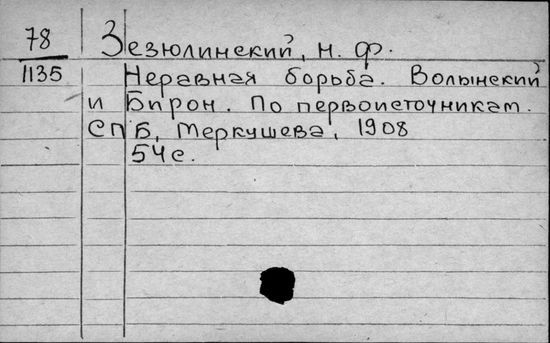 78 Зезюлинский, Н. Ф.
1135 Неравная борьба. Волынский
и Бирон. По первоисточникам.
СПБ, Меркушева, 1908
54с.